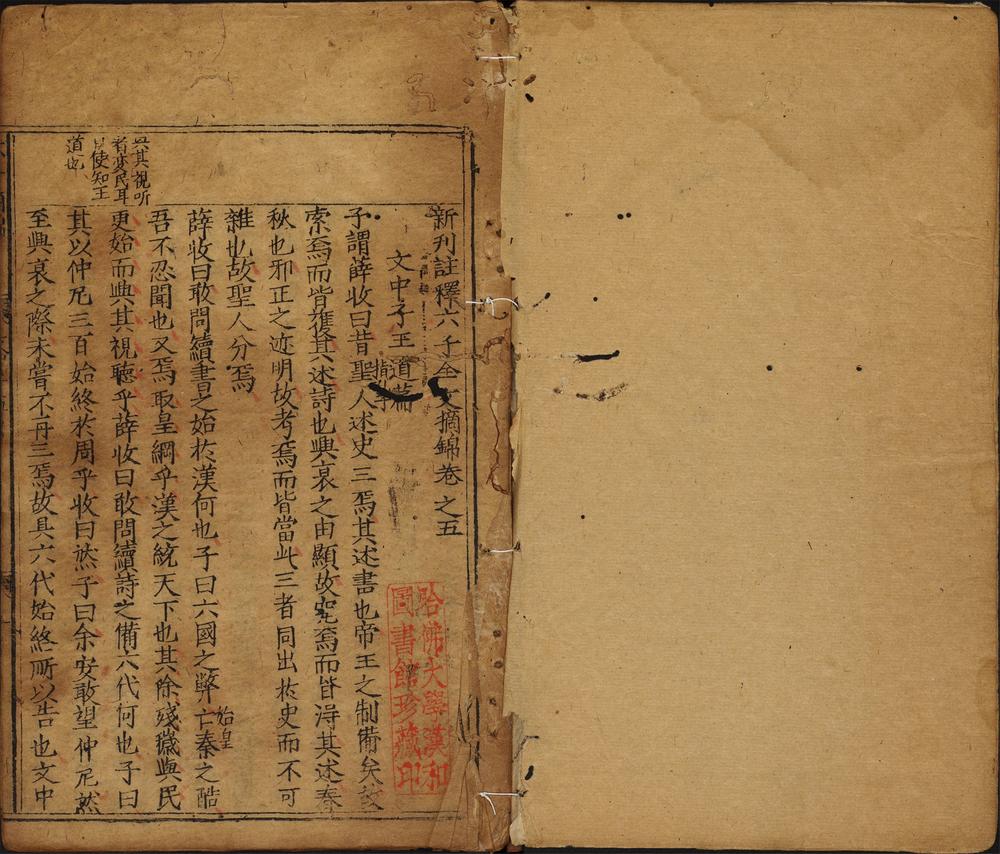 新刊註釋六子全文摘錦卷之五
文中子王道篇
子謂薛收曰昔聖人述史三焉其述書也帝王之制備矣故
索焉而皆獲其述詩也興衰之由顯故究焉而皆淂其述春
秋也邪正之迹明故考焉而皆當此三者同出於史而不可
雜也故聖人分焉
薛收曰敢問續書之始於漢何也子曰六國之弊亡秦之酷
始皇
吾不忍聞也又焉取皇綱乎漢之統天下也其除殘穢與民
更始而興其視聽乎薛收曰敢問續詩之備六代何也子曰
其以仲尼三百始終於周乎收曰然子曰余安敢望仲尼然
至興衰之際未嘗不再三焉故具六代始終所以告也文中
興其視听
者变民耳
目使知王
道也
哈佛大學漢和
圖書館珍藏印